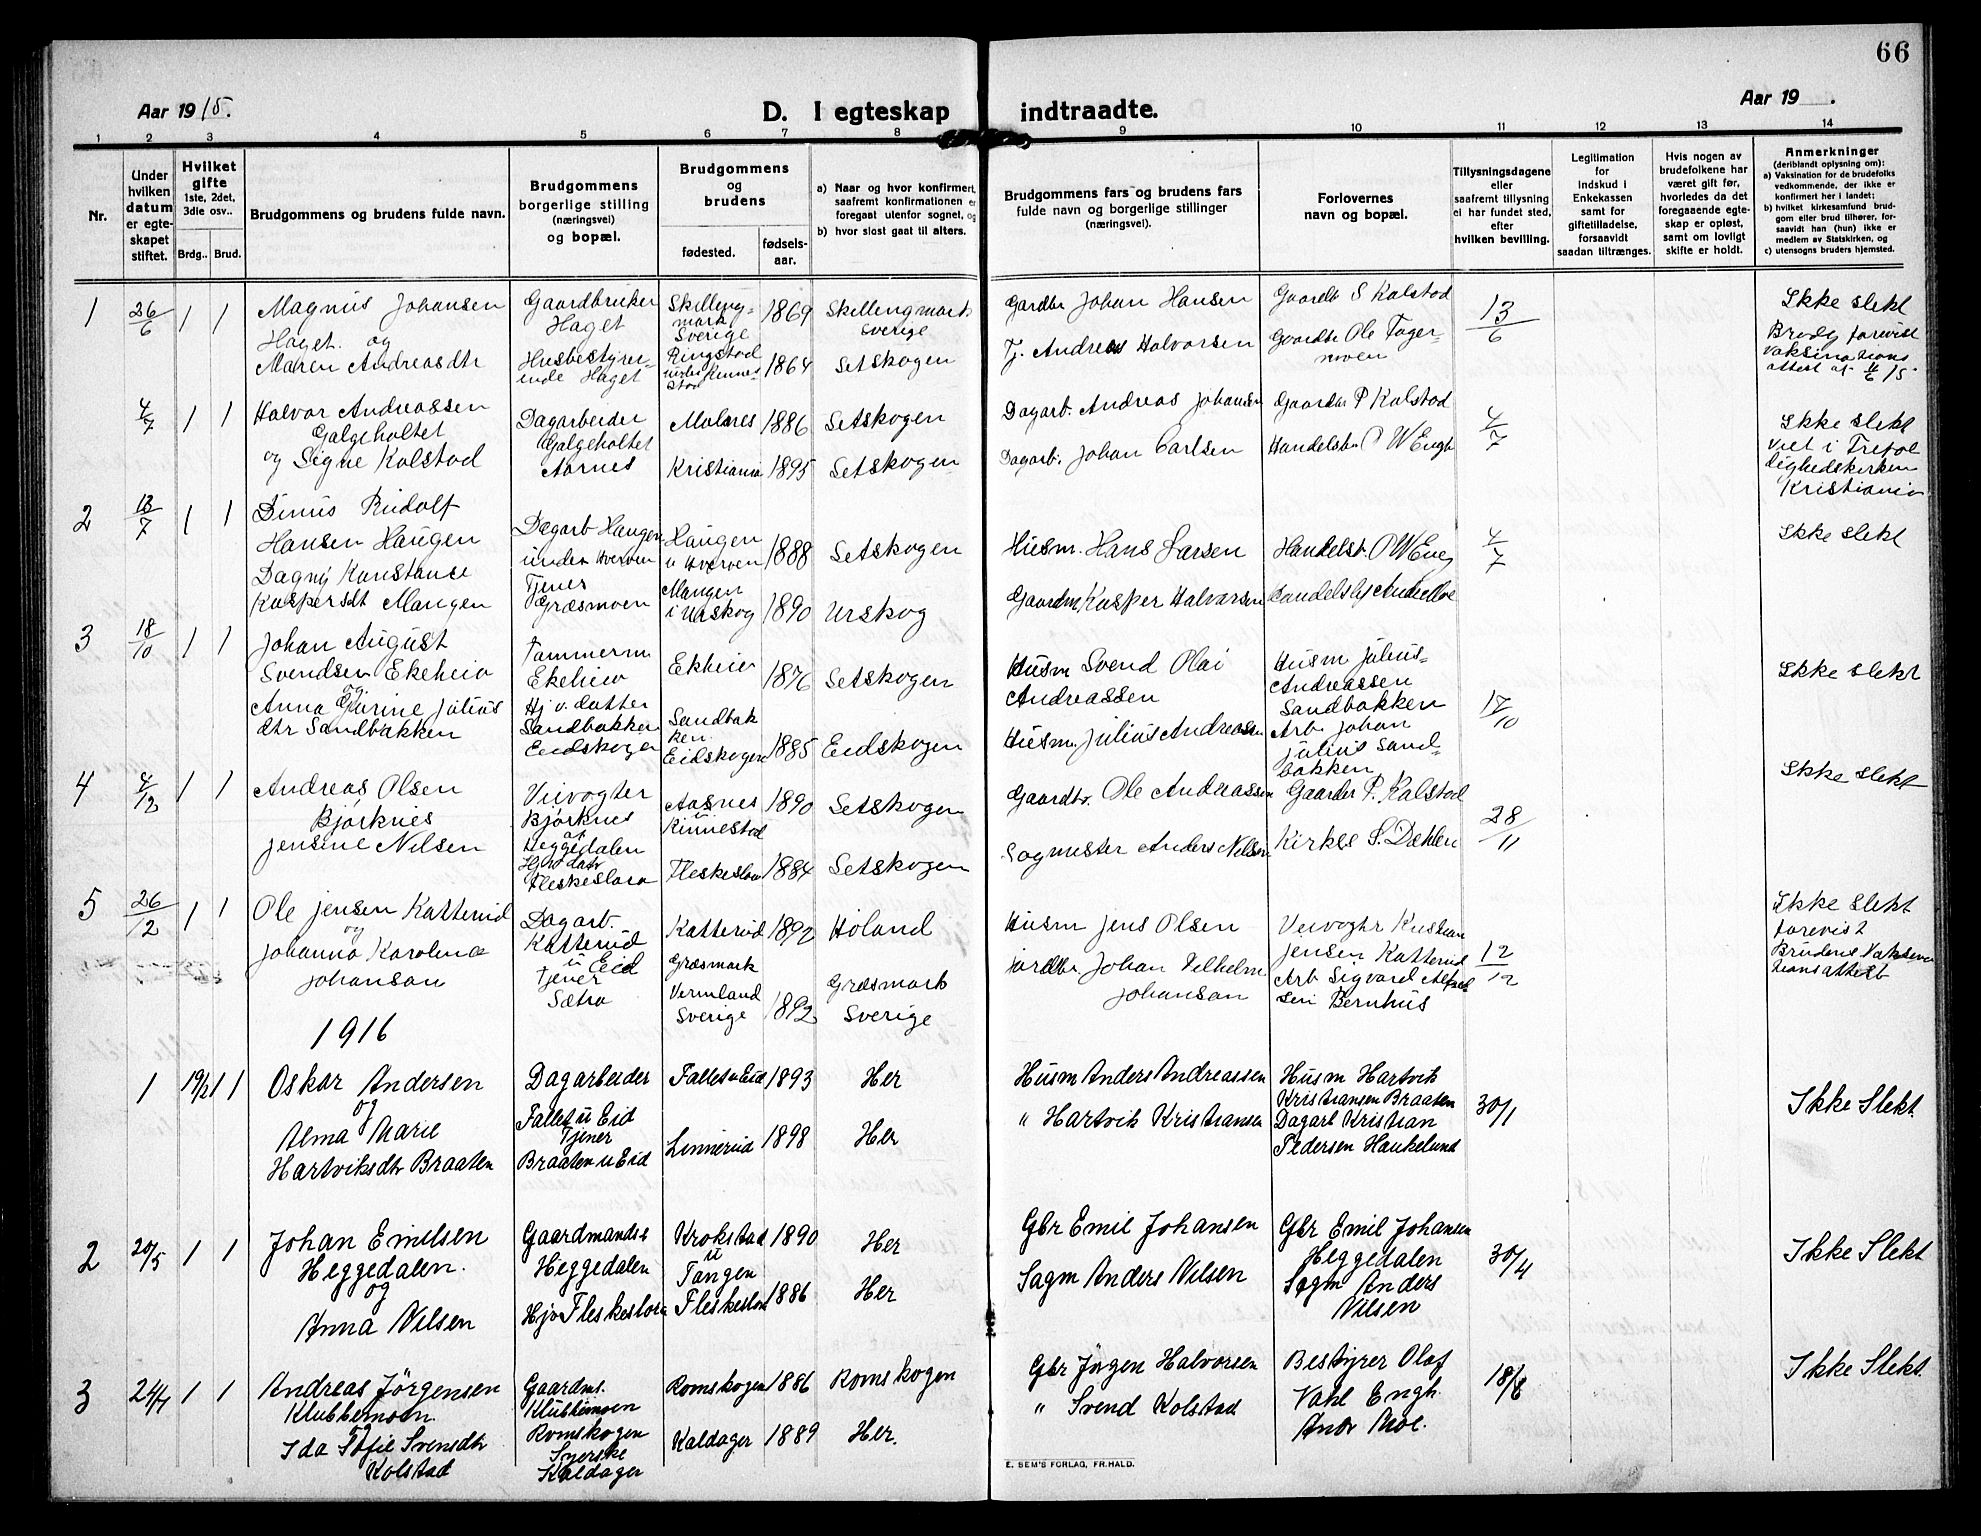 66
Aar 1915.
D. I egteskap indtraadte.
Aar 19 .
1 2 3 4 5 6 7 8 9 10 11 12 13 14
Nr.
Under hvilken datum er egteskapet stiftet.
Hvilket gifte 1ste, 2det, 3die osv..
Brdg.. Brud.
Brudgommens og brudens fulde navn.
Brudgommens borgerlige stilling (næringsvei) og bopæl.
Brudgommens og brudens
fødested.
fødselsaar.
a) Naar og hvor konfirmert, saafremt konfirmationen er foregaat utenfor sognet, og
b) hvor sidst gaat til alters.
Brudgommens fars og brudens fars fulde navn og borgerlige stillinger (næringsvei).
Forlovernes navn og bopæl.
Tillysningsdagene eller saafremt tillysning ei har fundet sted, efter hvilken bevilling.
Legitimation for indskud i Enkekassen samt for giftetilladelse, forsaavidt saadan tiltrænges.
Hvis nogen av brudefolkene har været gift før, hvorledes da det foregaaende egteskap er opløst, samt om lovligt skifte er holdt.
Anmerkninger (deriblandt oplysning om):
a) Vaksination for de brudefolks vedkommende, der ikke er konfirmert her i landet;
b) hvilket kirkesamfund brudgom eller brud tilhører, forsaavidt han (hun) ikke er medlem av Statskirken, og
c) utensogns bruders hjemsted.
1 26/6 1 1
Magnus Johansen
Haget. og
Maren Andreasdtr
Gaardbruker
Haget
Husbestyrer-
inde Haget
Skilling-
mark
Sverige
Ringstad
under Kinnes-
stad
1869
1864
Skillingmark
Sverige
Setskogen
Gardbr Johan Hansen
Tj. Andreas Halvorsen
Gaardb S Kolstad
Gaardbr Ole Toger-
moen
13/6
Ikke slekt
Brudg forevist
vaksinations
attest af 11/6 15
4/7 1 1
Halvor Andreassen
Galgeholtet
og Signe Kolstad
Dagarbeider
Galgeholtet
Aarnes
Molnes 1886 Setskogen
Kristiania 1895 Setskogen
Dagarb. Andreas Johansen
Dagarb. Johan Carlsen
Gaardbr P Kolstad
Handelsbr P W Engh
4/7
Ikke slekt
Viet i Trefol
dighedskirken
Kristiania
2 13/7 1 1
Dinus Rudolf
Hansen Haugen
Dagny Konstanse
Kaspersdt Mangen
Dagarb Haugen
under Hverven
Tjener
Græsmoen
Haugen
u Hverven
Mangen
i Urskog
1888 Setskogen
1890 Urskog
Husm. Hans Larsen
Gaardm Kasper Halvorsen
Handelsb. O W Eng
4/7
Ikke slekt
3 18/10 1 1
Johan August
Svendsen Ekeheia
og
Anna Gurine Julius
dtr Sandbakken
Tømmerm
Ekeheia
Hj v. datter
Sandbakken
Eidskogen
Ekheia
Sandbak
ken.
Eidskogen
1876 Setskogen
1885 Eidskogen
Husm Svend Olai
Andreassen
Husm. Julius Andreassen
Husm Julius
Andreassen
Sandbakken
Arb. Johan
Julius Sand-
bakken
17/10
Ikke slekt
4 4/12 1 1
Andreas Olsen
Bjørknes
Jensine Nilsen
Veivogter
Bjørknes
Heggedalen
Hjv datr
Fleskeslora
Aasnes
u
Kinnestad
Fleskeslora
1890 Setskogen
1884 Setskogen
Gaardbr. Ole Andreassen
Sagmester Anders Nilsen
Gaardbr P. Kolstad
Kirkes S. Dæhlen
28/11
Ikke slekt
5 26/12 1 1
Ole Jensen Katterud
og
Johanna Karolina
Johansan
Dagarb.
Katterud
u Eid
Tjener
Sætra
Katterud
Græsmark
Vermland
Sverige
1892 Høland
1892
Græsmark
Sverige
Husm Jens Olsen
Jordbr Johan Vilhelm
Johansan
Veivogtr Kristian
Jensen Katterud
Arb Sigvard Alfred
sen Bernhus
12/12
Ikke slekt
forevist
Brudens Vaksina
tionsattest
1916
1 19/2 1 1
Oskar Andersen
og
Alma Marie
Hartviksdtr Braaten
Dagarbeider
Fallet u Eid
Tjener
Braaten u Eid
Fallet u Eid 1893 Her
Linnerud 1898 Her
Husm Anders Andreassen
" Hartvik Kristiansen
Husm Hartvik
Kristiansen Braaten
Dagarb Kristian
Pedersen Haukelund
30/1
Ikke Slekt.
2 20/5 1 1
Johan Emilsen
Heggedalen.
og
Anna Nilsen
Gaardmands
Heggedalen
Hjv Fleskeslora
Krokstad
u
Tangen
Fleskeslora
1890 Her
1886 Her
Gbr Emil Johansen
Sagm Anders Nilsen
Gbr Emil Johansen
Heggedalen
Sagm Anders
Nilsen
30/4
Ikke Slekt
3 24/4 1 1
Andreas Jörgensen
Klubbemoen.
og
Ida Sofie Svensdtr
Kolstad
Gaardms.
Klubbemoen
Romskogen
Syerske
Kaldager
Romskogen 1886 Romskogen
Kaldager 1889 Her.
Gbr Jörgen Halvorsen
" Svend Kolstad
Bestyrer Olaf
Vahl Engh.
Andr Moe.
18/8
Ikke Slekt.
E. SEM'S FORLAG, FR.HALD.